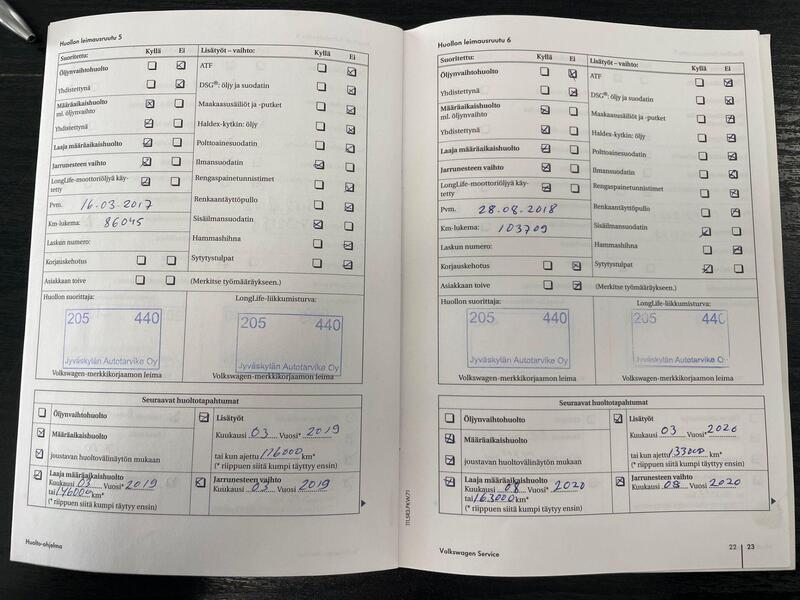 Huollon leimausruutu 5
Suoritettu: Kyllä Ei
Öljynvaihtohuolto
Yhdistettynä
Määräaikaishuolto
ml. öljynvaihto
Yhdistettynä
Laaja määräaikaishuolto
Jarrunesteen vaihto
LongLife-moottoriöljyä käy-
tetty
Pvm. 16.03.2017
Km-lukema: 86045
Laskun numero:
Korjauskehotus
Asiakkaan toive
Lisätyöt – vaihto: Kyllä Ei
ATF
DSG®: öljy ja suodatin
Maakaasusäiliöt ja -putket
Haldex-kytkin: öljy
Polttoainesuodatin
Ilmansuodatin
Rengaspainetunnistimet
Renkaantäyttöpullo
Sisäilmansuodatin
Hammashihna
Sytytystulpat
(Merkitse työmääräykseen.)
Huollon suorittaja:
LongLife-liikkumisturva:
205 440
Jyväskylän Autotarvike Oy
205 440
Jyväskylän Autotarvike Oy
Volkswagen-merkkikorjaamon leima
Volkswagen-merkkikorjaamon leima
Seuraavat huoltotapahtumat
Öljynvaihtohuolto
Määräaikaishuolto
joustavan huoltovälinäytön mukaan
Lisätyöt
Kuukausi 03 Vuosi* 2019
tai kun ajettu 116000 km*
(* riippuen siitä kumpi täytyy ensin)
Laaja määräaikaishuolto
Kuukausi 03 Vuosi* 2019
tai 146000 km*
(* riippuen siitä kumpi täytyy ensin)
Jarrunesteen vaihto
Kuukausi 03 Vuosi 2019
Huolto-ohjelma
Huollon leimausruutu 6
Suoritettu: Kyllä Ei
Öljynvaihtohuolto
Yhdistettynä
Määräaikaishuolto
ml. öljynvaihto
Yhdistettynä
Laaja määräaikaishuolto
Jarrunesteen vaihto
LongLife-moottoriöljyä käy-
tetty
Pvm. 28.08.2018
Km-lukema: 103709
Laskun numero:
Korjauskehotus
Asiakkaan toive
Lisätyöt – vaihto: Kyllä Ei
ATF
DSG®: öljy ja suodatin
Maakaasusäiliöt ja -putket
Haldex-kytkin: öljy
Polttoainesuodatin
Ilmansuodatin
Rengaspainetunnistimet
Renkaantäyttöpullo
Sisäilmansuodatin
Hammashihna
Sytytystulpat
(Merkitse työmääräykseen.)
Huollon suorittaja:
LongLife-liikkumisturva:
205 440
Jyväskylän Autotarvike Oy
205 440
Jyväskylän Autotarvike Oy
Volkswagen-merkkikorjaamon leima
Volkswagen-merkkikorjaamon leima
Seuraavat huoltotapahtumat
Öljynvaihtohuolto
Määräaikaishuolto
joustavan huoltovälinäytön mukaan
Lisätyöt
Kuukausi 03 Vuosi* 2020
tai kun ajettu 133000 km*
(* riippuen siitä kumpi täytyy ensin)
Laaja määräaikaishuolto
Kuukausi 08 Vuosi* 2020
tai 163000 km*
(* riippuen siitä kumpi täytyy ensin)
Jarrunesteen vaihto
Kuukausi 08 Vuosi 2020
Volkswagen Service
22 23